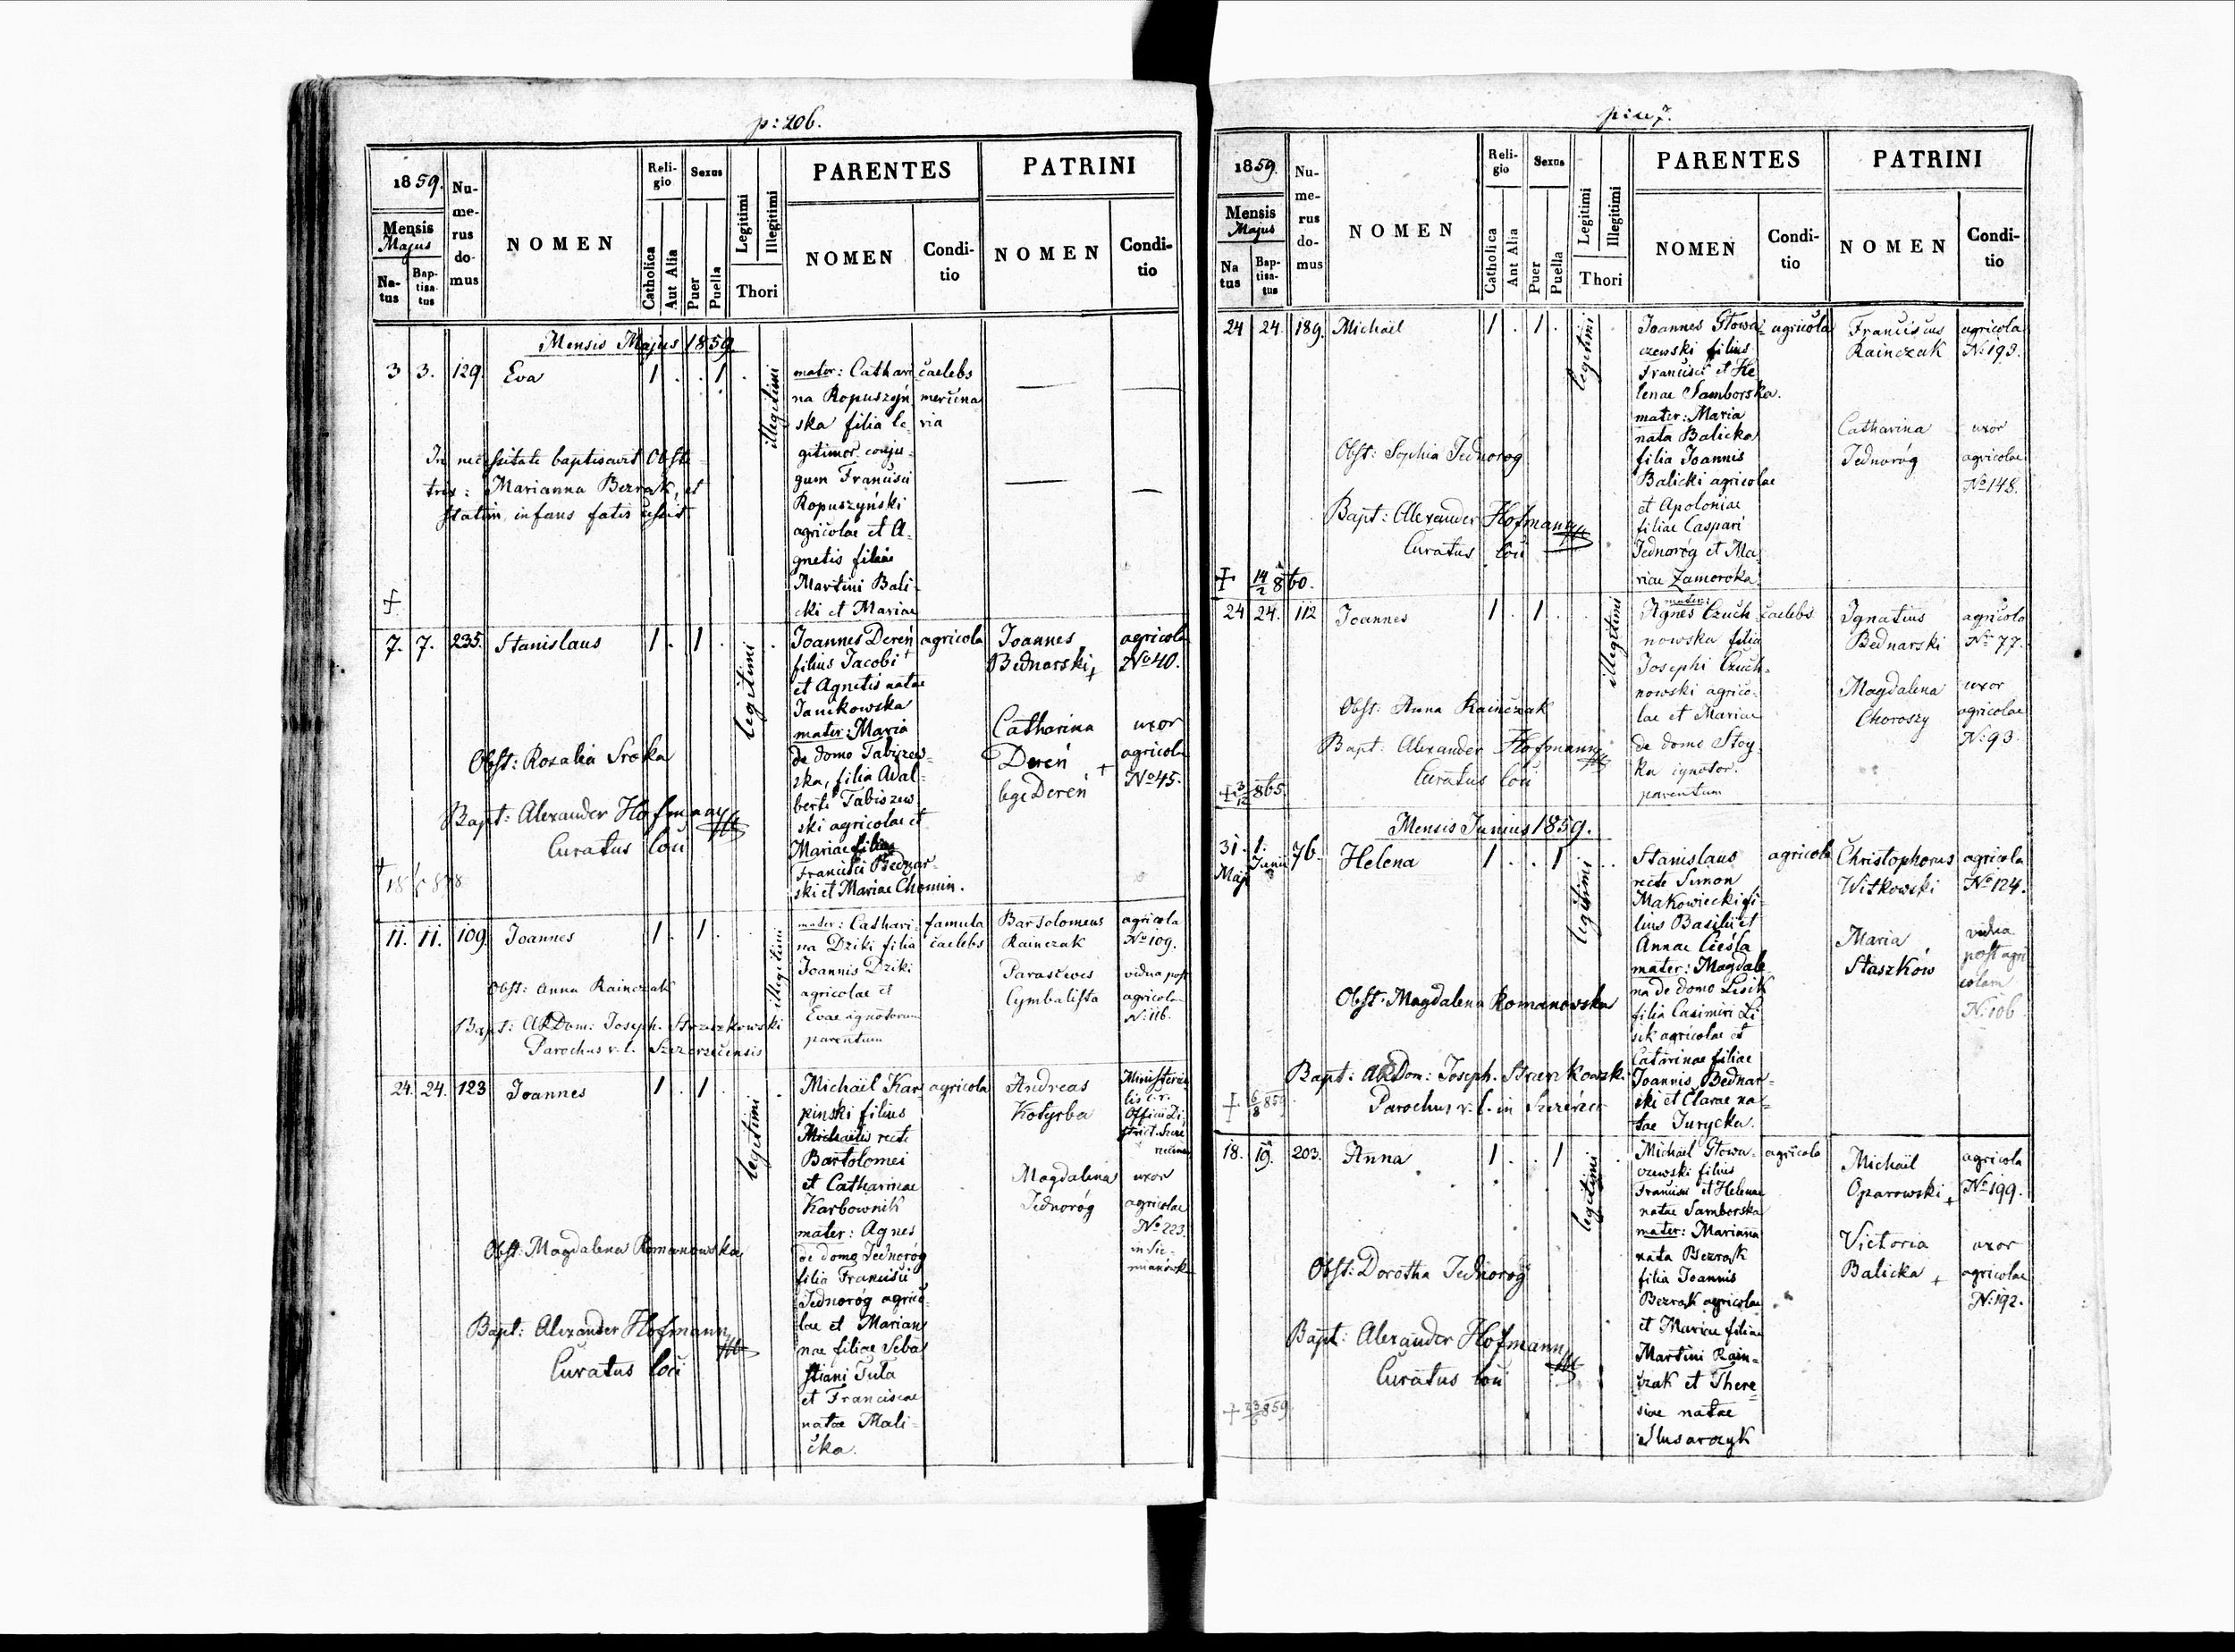 p: 206.
1859.
Numerus domus
NOMEN
Religio
Sexus
Legitimi
Illegitimi
PARENTES
PATRINI
Mensis
Majus
Natus
Baptisatus
Catholica
Aut Alia
Puer
Puella
Thori
NOMEN
Conditio
NOMEN
Conditio
Mensis Majus 1859.
3 3. 129. Eva 1 . . 1 .
illegitimi
mater: Cathari
na Ropuszyń
ska filia le-
gitimor. conju-
gum Francisci
Ropuszyński
agricolae et A-
gnetis filiae
Martini Bali-
cki et Mariae
caelebs
mercena
ria
In necessitate baptisavit Obste-
trix: Marianna Bezrak, et
statim infans fatis cessit.
+
7. 7. 235. Stanislaus 1 . 1 . .
legitimi
Joannes Dereń
filius Jacobi
et Agnetis natae
Janikowska
mater: Maria
de domo Tabiszew-
ska, filia Adal-
berti Tabiszew-
ski agricolae et
Mariae filiae
Francisci Bednar-
ski et Mariae Chomin.
agricola
Joannes
Bednarski +
agricola
No 40.
Catharina
Dereń +
lege Dereń
uxor
agricolae
No 45.
Obst: Rozalia Sroka
Bapt: Alexander Hofmann
Curatus loci
11. 11. 109. Joannes 1 . 1 .
illegitimi
mater: Cathari-
na Dziki filia
Joannis Dziki
agricolae et
Evae ignotorum
parentum
famula
caelebs
Bartolomeus
Rainczak
agricola
No 109.
Parascevis
Cymbalista
vidua post
agricolam
No: 116.
Obst: Anna Rainczak
Bapt: ARDom: Joseph. Strzizkowski
Parochus r. l. Szczerzecensis
24. 24. 123 Joannes 1 . 1 . .
legitimi
Michaël Kar
pinski filius
Michaëlis recte
Bartolomei
et Catharinae
Karbownik
mater: Agnes
de domo Jednoróg
filia Francisci
Jednoróg agrico-
lae et Marian
nae filiae Seba
stiani Tula
et Franciscae
natae Mali-
cka.
agricola
Andreas
Kotyrba
Ministeria
lis c. r.
Officii Di
strict. Szcze
recensis
Magdalena
Jednoróg
uxor
agricolae
No 223.
in Sie-
mianówka
Obst: Magdalena Romanowska
Bapt: Alexander Hofmann
Curatus loci
1859.
Numerus domus
NOMEN
Religio
Sexus
Legitimi
Illegitimi
PARENTES
PATRINI
Mensis
Majus
Natus
Baptisatus
Catholica
Aut Alia
Puer
Puella
Thori
NOMEN
Conditio
NOMEN
Conditio
24 24. 189. Michaël 1 . 1 .
legitimi
Joannes Głowa-
czewski filius
Francisci et He
lenae Samborska.
mater: Maria
nata Balicka
filia Joannis
Balicki agricolae
et Apoloniae
filiae Caspari
Jednoróg et Ma-
riae Zamoroka
agricola
Franciscus
Rainczak
agricola
No: 193.
Catharina
Jednoróg
uxor
agricolae
No 148.
Obst: Sophia Jednoróg
Bapt: Alexander Hofmann
Curatus loci
+ 14/2 860.
24 24. 112 Joannes 1 . 1 . .
illegitimi
mater:
Agnes Czuch
nowska filia
Josephi Czuch-
nowski agrico-
lae et Mariae
de domo Stoy-
ka ignotor.
parentum
caelebs
Ignatius
Bednarski
agricola
No 77.
Magdalena
Choroszy
uxor
agricolae
No: 93.
Obst: Anna Rainczak
Bapt: Alexander Hofmann
Curatus loci
+ 3/12 865.
Mensis Junius 1859.
31. Maj 1. Junii 76. Helena 1 . . 1 .
legitimi
Stanislaus
recte Simon
Makowiecki fi-
lius Basilii et
Annae Cieśla
mater: Magdale
na de domo Lisik
filia Casimiri Li
sik agricolae et
Catarinae filiae
Joannis Bednar-
ski et Clarae na-
tae Jurycka.
agricola
Christophorus
Witkowski
agricola
No 124.
Maria
Staszków
vidua
post agri
colam
No: 106.
Obst: Magdalena Romanowska
Bapt: ARDom: Joseph. Strzizkowski
Parochus r. l. in Szczerzec
+ 6/8 859
18. 19. 203. Anna 1 . . 1 .
legitimi
Michaël Głowa-
czewski filius
Francisci et Helenae
natae Samborska
mater: Marianna
nata Bezrak
filia Joannis
Bezrak agricolae
et Mariae filiae
Martini Rain-
czak et There-
siae natae
Slusarczyk
agricola
Michaël
Oparowski +
agricola
No 199.
Victoria
Balicka +
uxor
agricolae
No: 192.
Obst: Dorotha Jednoróg
Bapt: Alexander Hofmann
Curatus loci